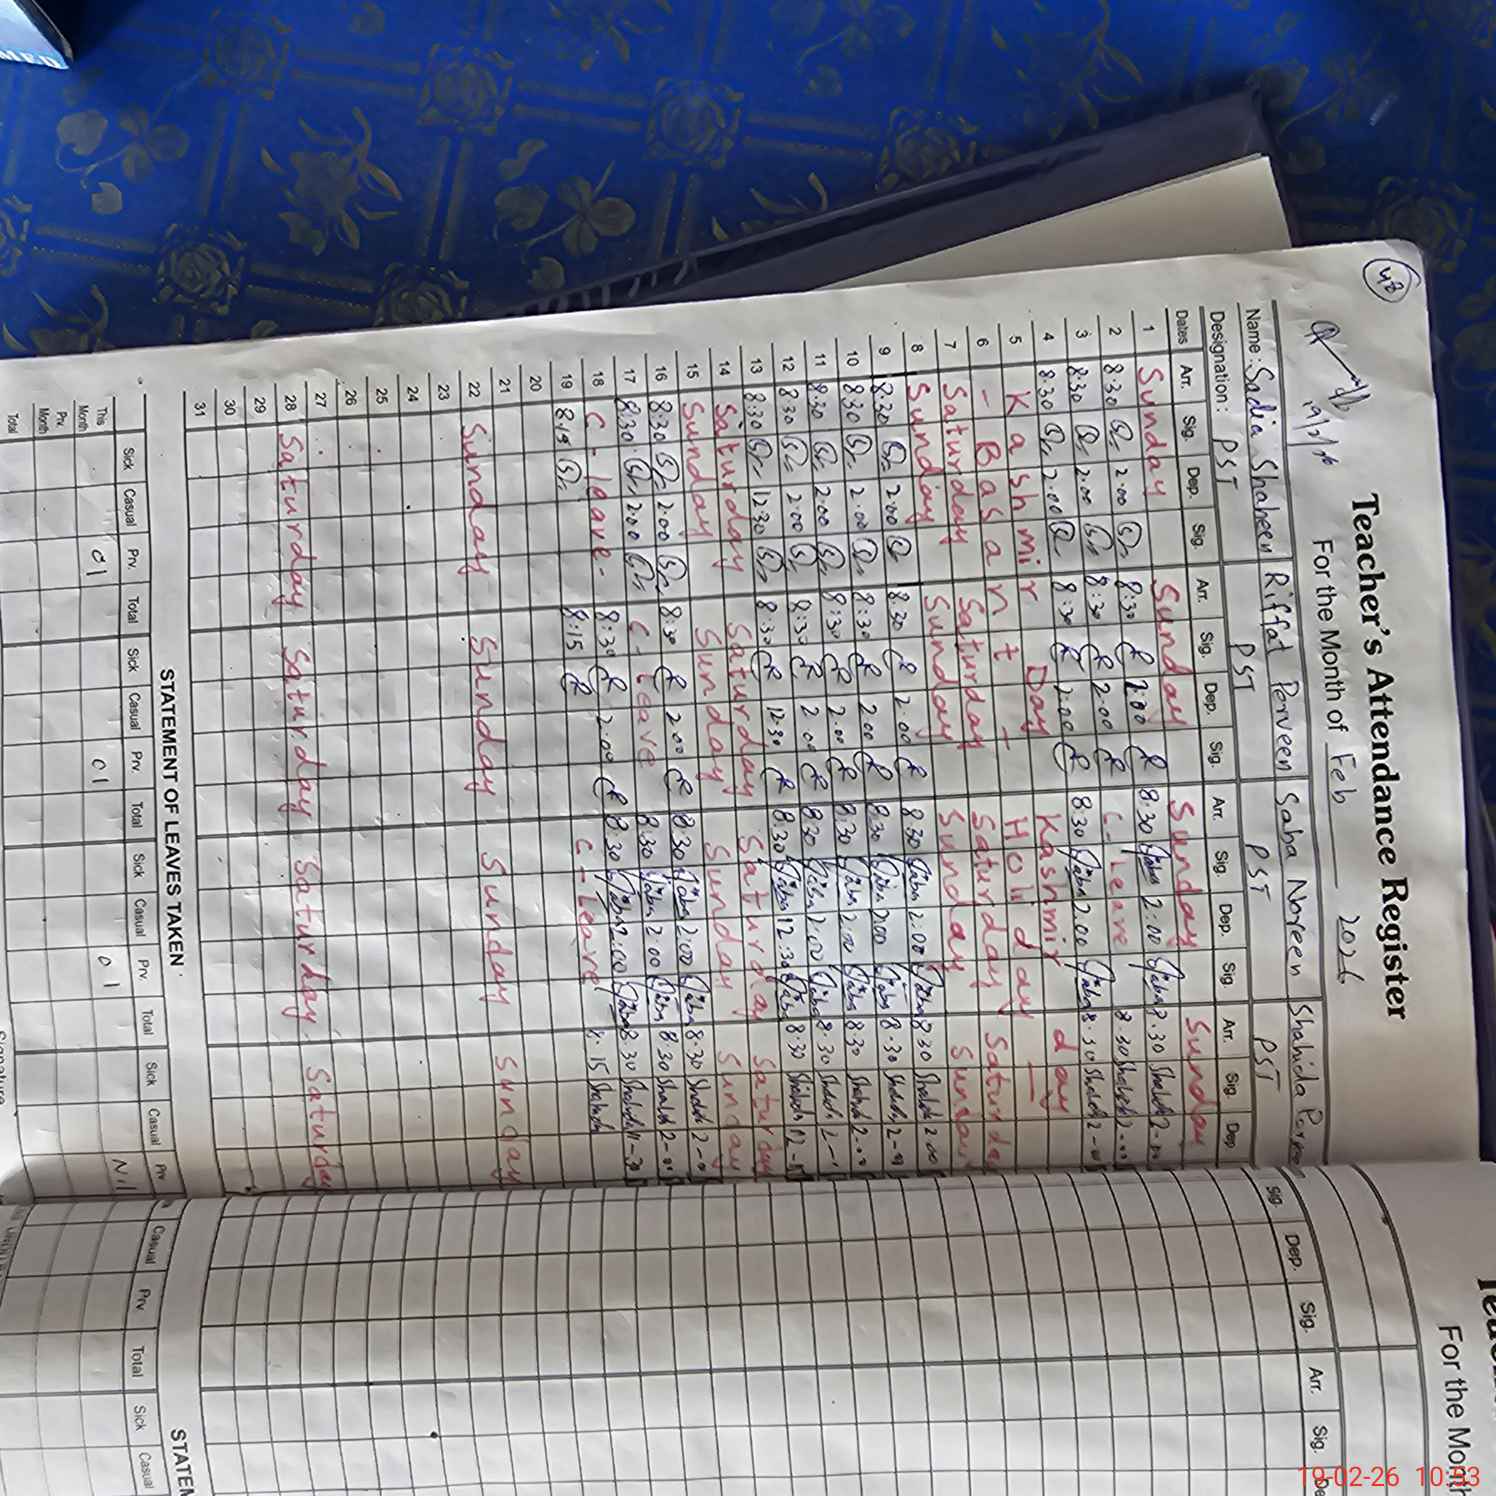 48
19/2/26
Teacher's Attendance Register
For the Month of Feb 2026
Name: Sadia Shaheen Riffat Perveen Saba Noreen Shahida Parveen
Designation: PST PST PST PST
Dates Arr. Sig. Dep. Sig. Arr. Sig. Dep. Sig. Arr. Sig. Dep. Sig. Arr. Sig. Dep
1 Sunday Sunday Sunday Sunday
2 8:30 2.00 8:30 2:00 8.30 2:00 8.30 2-00
3 8:30 2.00 8:30 2.00 C-Leave 8.30 2-00
4 8.30 2.00 8:30 2:00 8.30 2.00 8.30 2-00
5 Kashmir Day Kashmir day
6 - Basant - Holiday -
7 Saturday Saturday Saturday Saturday
8 Sunday Sunday Sunday Sunday
9 8.30 2.00 8.30 2.00 8.30 2.00 8.30 2.00
10 8.30 2.00 8:30 2.00 8.30 2.00 8.30 2-00
11 8.30 2.00 8:30 2.00 8.30 2.00 8.30 2-00
12 8.30 2.00 8:30 2.00 8.30 2.00 8.30
13 8.30 12.30 8:30 12.30 8.30 12.30 8.30
14 Saturday Saturday Saturday Saturday
15 Sunday Sunday Sunday Sunday
16 8.30 2.00 8.30 2.00 8.30 2.00 8.30 2-00
17 8.30 2.00 C-Leave 8.30 2.00 8.30 2-00
18 C-leave- 8:30 2.00 8.30 2.00 8.30
19 8.15 8:15 C-Leave 8.15
20
21
22 Sunday Sunday Sunday Sunday
23
24
25
26
27
28 Saturday Saturday Saturday Saturday
29
30
31
STATEMENT OF LEAVES TAKEN
Sick Casual Prv. Total Sick Casual Prv. Total Sick Casual Prv. Total Sick Casual Prv
This Month 01 01 01 Nil
Prv. Month
Total
Signature
For the Month
Sig. Dep. Sig. Arr. Sig. De
STATEM
Casual Prv Total Sick Casual
19-02-26 10:53